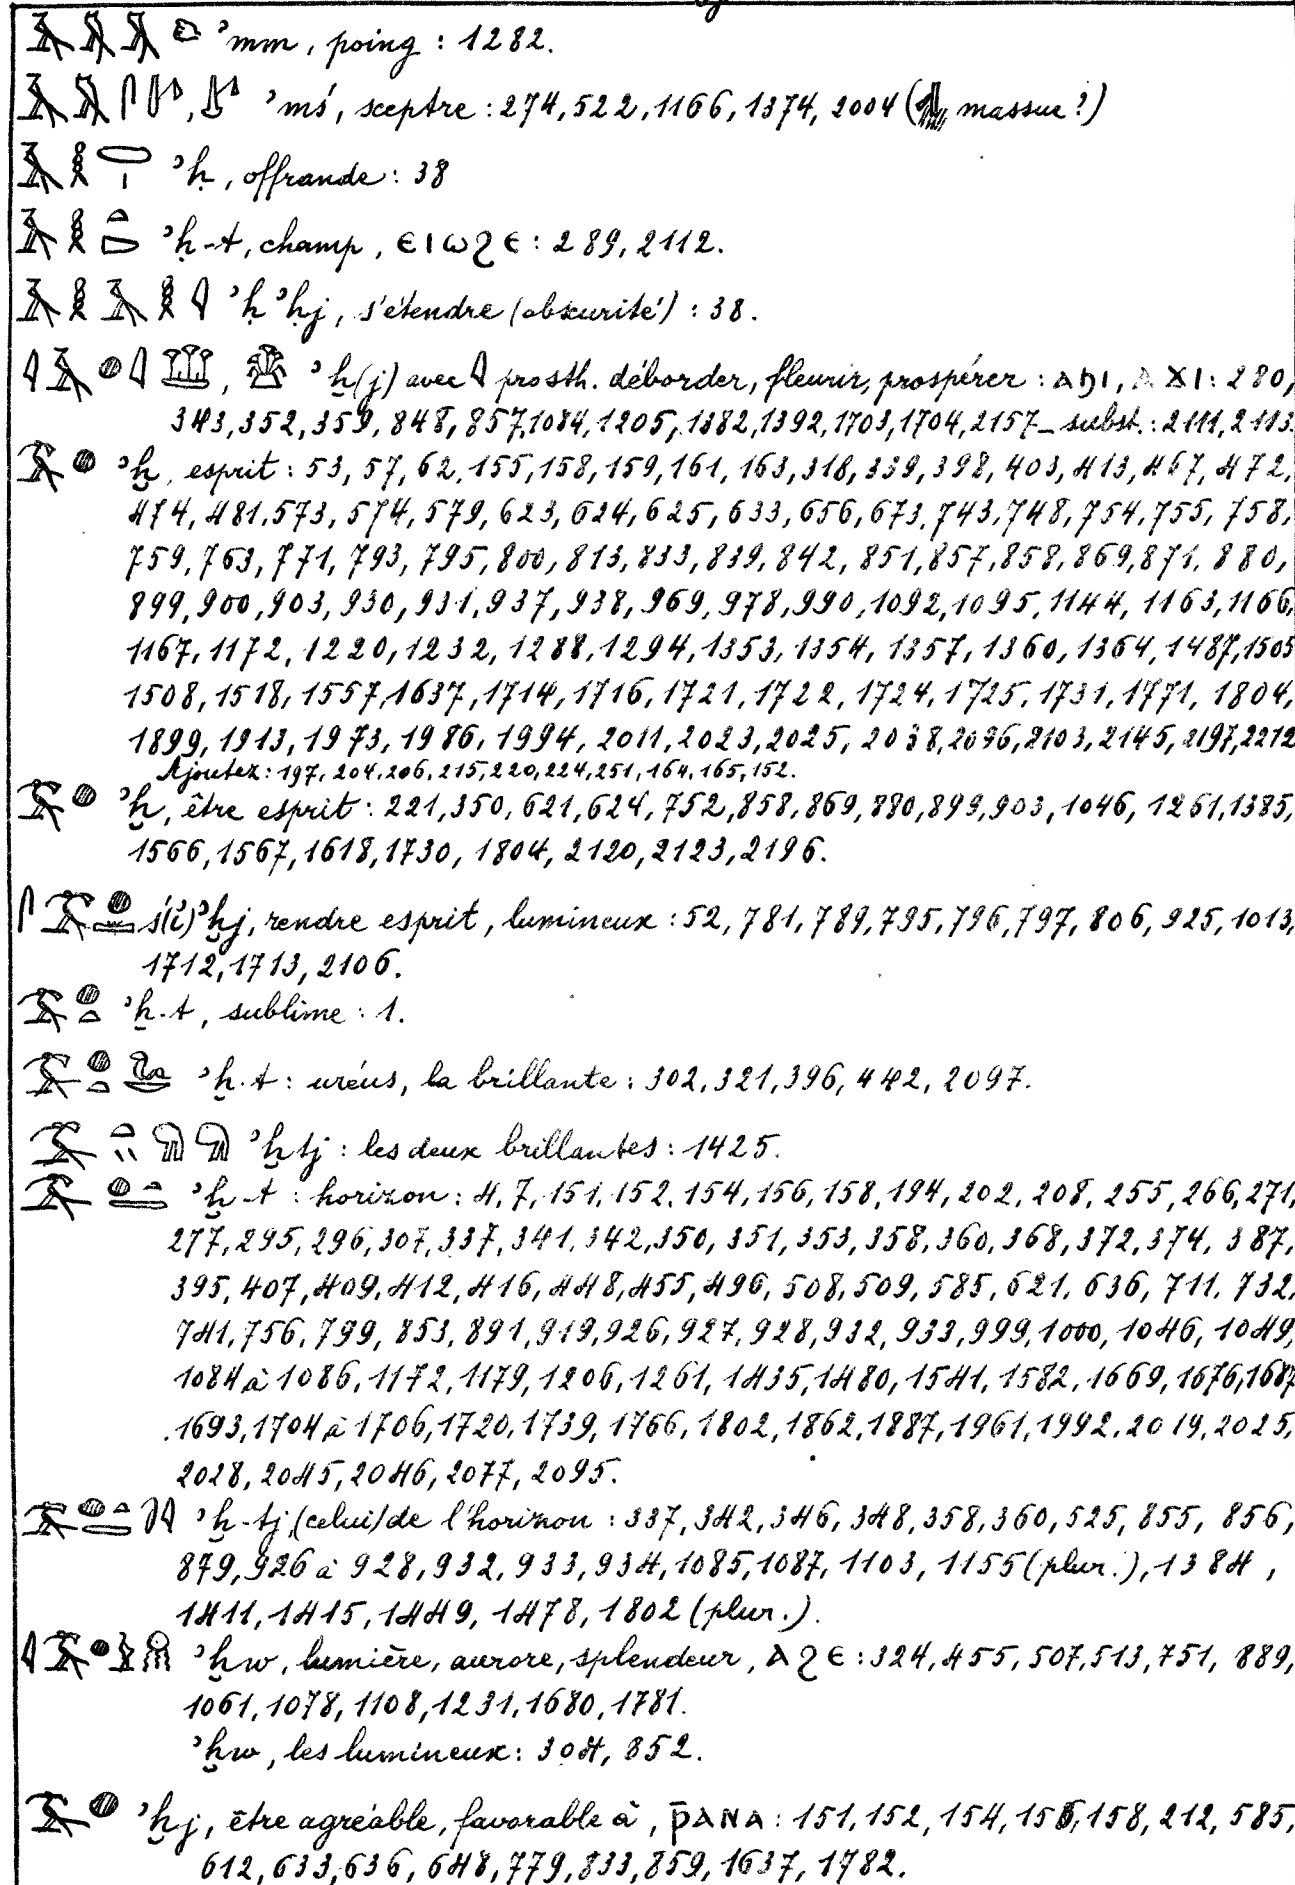 ꜣmm, poing : 1282.
ꜣmś, sceptre : 274, 522, 1166, 1374, 2004 ( massue ?)
ꜣḥ, offrande : 38
ꜣḥ-t, champ, ⲉⲓⲱϩⲉ : 289, 2112.
ꜣḥꜣḥj, s'étendre (obscurité) : 38.
ꜣḫ(j) avec 𓇋 prosth. déborder, fleurir, prospérer : ⲁϧⲓ, ⲁⲭⲓ : 280,
343, 352, 359, 848, 857, 1084, 1205, 1382, 1392, 1703, 1704, 2157 _ subst. : 2111, 2113.
ꜣḫ, esprit : 53, 57, 62, 155, 158, 159, 161, 163, 318, 339, 398, 403, 413, 467, 472,
474, 481, 573, 574, 579, 623, 624, 625, 633, 656, 673, 743, 748, 754, 755, 758,
759, 763, 771, 793, 795, 800, 813, 833, 839, 842, 851, 857, 858, 869, 871, 880,
899, 900, 903, 930, 931, 937, 938, 969, 978, 990, 1092, 1095, 1144, 1163, 1166,
1167, 1172, 1220, 1232, 1288, 1294, 1353, 1354, 1357, 1360, 1364, 1487, 1505
1508, 1518, 1557, 1637, 1714, 1716, 1721, 1722, 1724, 1725, 1731, 1771, 1804,
1899, 1913, 1973, 1986, 1994, 2011, 2023, 2025, 2038, 2096, 2103, 2145, 2197, 2212
Ajoutez : 197, 204, 206, 215, 220, 224, 251, 164, 165, 152.
ꜣḫ, être esprit : 221, 350, 621, 624, 752, 858, 869, 880, 899, 903, 1046, 1261, 1385,
1566, 1567, 1618, 1730, 1804, 2120, 2123, 2196.
ś(i)ꜣḫj, rendre esprit, lumineux : 52, 781, 789, 795, 796, 797, 806, 925, 1013,
1712, 1713, 2106.
ꜣḫ.t, sublime : 1.
ꜣḫ.t : uréus, la brillante : 302, 321, 396, 442, 2097.
ꜣḫtj : les deux brillantes : 1425.
ꜣḫ-t : horizon : 4, 7, 151, 152, 154, 156, 158, 194, 202, 208, 255, 266, 271,
277, 295, 296, 307, 337, 341, 342, 350, 351, 353, 358, 360, 368, 372, 374, 387,
395, 407, 409, 412, 416, 448, 455, 496, 508, 509, 585, 621, 636, 711, 732,
741, 756, 799, 853, 891, 919, 926, 927, 928, 932, 933, 999, 1000, 1046, 1049,
1084 à 1086, 1172, 1179, 1206, 1261, 1435, 1480, 1541, 1582, 1669, 1676, 1687
1693, 1704 à 1706, 1720, 1739, 1766, 1802, 1862, 1887, 1961, 1992, 2019, 2025,
2028, 2045, 2046, 2077, 2095.
ꜣḫ-tj (celui) de l'horizon : 337, 342, 346, 348, 358, 360, 525, 855, 856,
879, 926 à 928, 932, 933, 934, 1085, 1087, 1103, 1155 (plur.), 1384,
1411, 1415, 1449, 1478, 1802 (plur.).
ꜣḫw, lumière, aurore, splendeur, ⲁϩⲉ : 324, 455, 507, 513, 751, 889,
1061, 1078, 1108, 1231, 1680, 1781.
ꜣḫw, les lumineux : 304, 852.
ꜣḫj, être agréable, favorable à, ⲣ̄ⲁⲛⲁ : 151, 152, 154, 156, 158, 212, 585,
612, 633, 636, 648, 779, 833, 859, 1637, 1782.